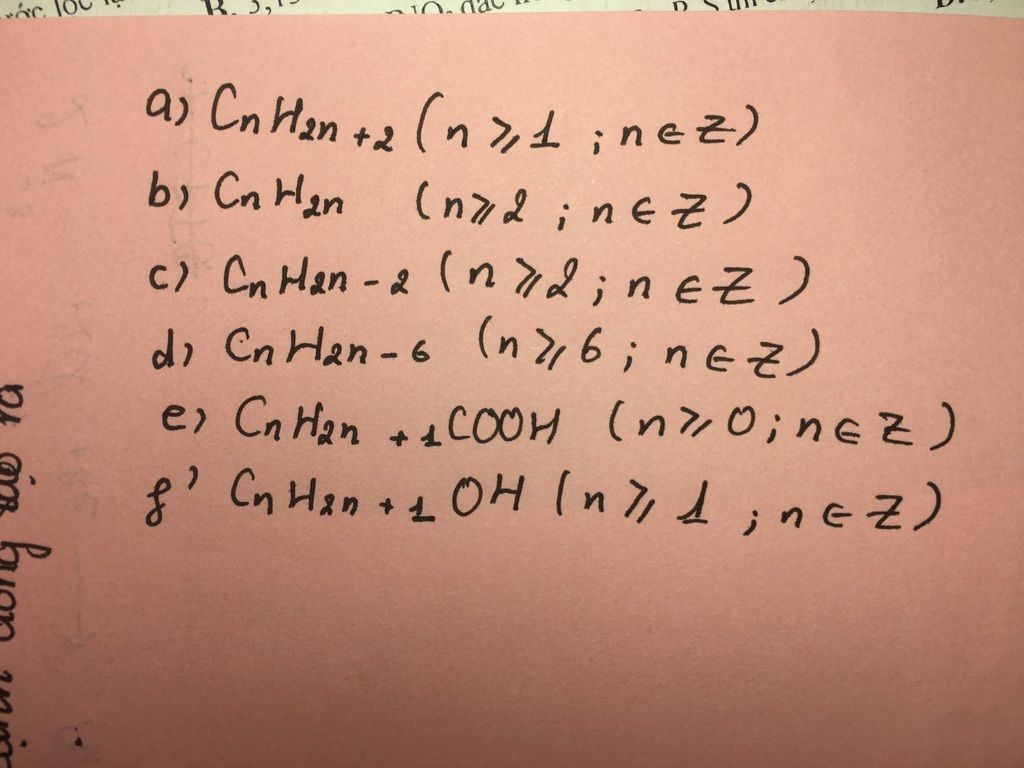 ước lọc
B. 3,15
đặc
a) CnH2n+2 (n ⩾ 1 ; n ∈ Z)
b) CnH2n (n ⩾ 2 ; n ∈ Z)
c) CnH2n-2 (n ⩾ 2 ; n ∈ Z)
d) CnH2n-6 (n ⩾ 6 ; n ∈ Z)
e) CnH2n+1COOH (n ⩾ 0 ; n ∈ Z)
f) CnH2n+1OH (n ⩾ 1 ; n ∈ Z)